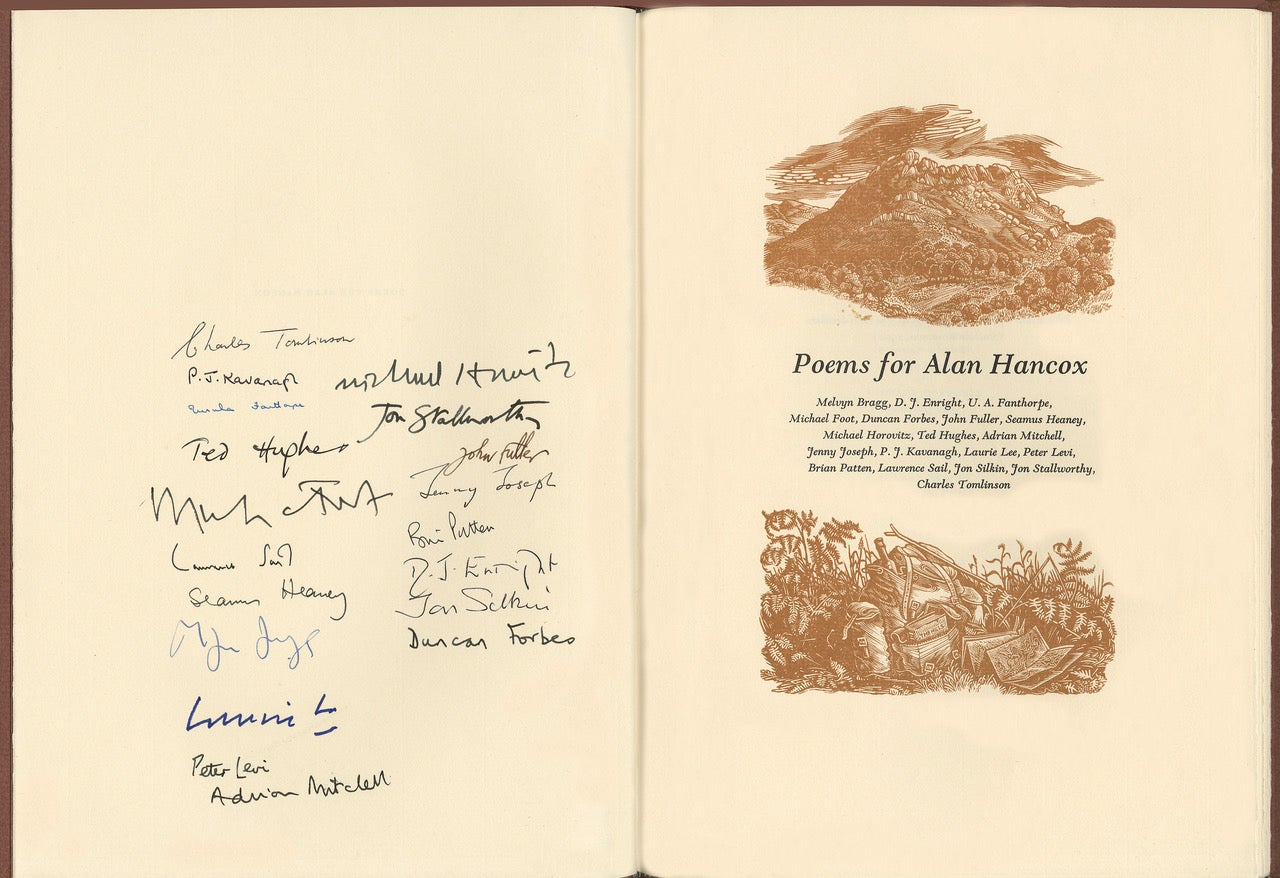 Charles Tomlinson
P. J. Kavanagh
Michael Horovitz
Ursula Fanthorpe
Jon Stallworthy
Ted Hughes
John Fuller
Jenny Joseph
Michael Foot
Brian Patten
Lawrence Sail
D. J. Enright
Seamus Heaney
Jon Silkin
Duncan Forbes
Laurie Lee
Peter Levi
Adrian Mitchell
Poems for Alan Hancox
Melvyn Bragg, D. J. Enright, U. A. Fanthorpe,
Michael Foot, Duncan Forbes, John Fuller, Seamus Heaney,
Michael Horovitz, Ted Hughes, Adrian Mitchell,
Jenny Joseph, P. J. Kavanagh, Laurie Lee, Peter Levi,
Brian Patten, Lawrence Sail, Jon Silkin, Jon Stallworthy,
Charles Tomlinson